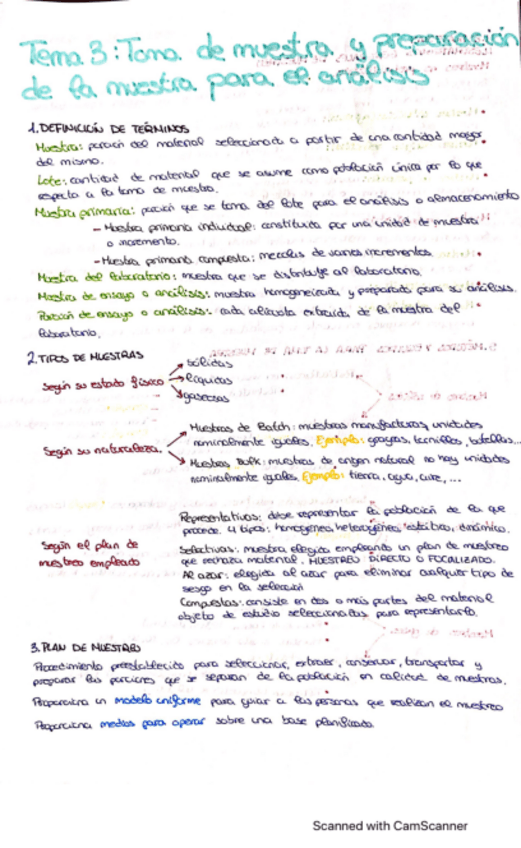 Tema 3: Toma de muestra y preparación
de la muestra para el análisis
1. DEFINICIÓN DE TÉRMINOS
Muestra: porción del material seleccionada a partir de una cantidad mayor
del mismo.
Lote: cantidad de material que se asume como población única por lo que
respecta a la toma de muestra.
Muestra primaria: porción que se toma del lote para el análisis o almacenamiento
- Muestra primaria individual: constituida por una unidad de muestra
o incremento.
- Muestra primaria compuesta: mezclas de varios incrementos.
Muestra del laboratorio: muestra que se distribuye al laboratorio.
Muestra de ensayo o análisis: muestra homogeneizada y preparada para su análisis.
Porción de ensayo o análisis: cada alícuota extraída de la muestra del
laboratorio.
2. TIPOS DE MUESTRAS
Según su estado físico
sólidas
líquidas
gaseosas
Según su naturaleza
Muestras de Batch: muestras manufacturas, unidades
nominalmente iguales. Ejemplo: grageas, tornillos, botellas...
Muestras Bulk: muestras de origen natural no hay unidades
nominalmente iguales. Ejemplo: tierra, agua, aire, ...
Según el plan de
muestreo empleado
Representativas: debe representar la población de la que
procede. 4 tipos: homogénea, heterogénea, estático, dinámico.
Selectivas: muestra elegida empleando un plan de muestreo
que rechaza material. MUESTREO DIRECTO O FOCALIZADO.
Al azar: elegida al azar para eliminar cualquier tipo de
sesgo en la selección
Compuestas: consiste en dos o más partes del material
objeto de estudio seleccionadas para representarlo.
3. PLAN DE MUESTREO
Procedimiento preestablecido para seleccionar, extraer, conservar, transportar y
preparar las porciones que se separan de la población en calidad de muestras.
Proporciona un modelo uniforme para guiar a las personas que realizan el muestreo
Proporciona medios para operar sobre una base planificada.
Scanned with CamScanner